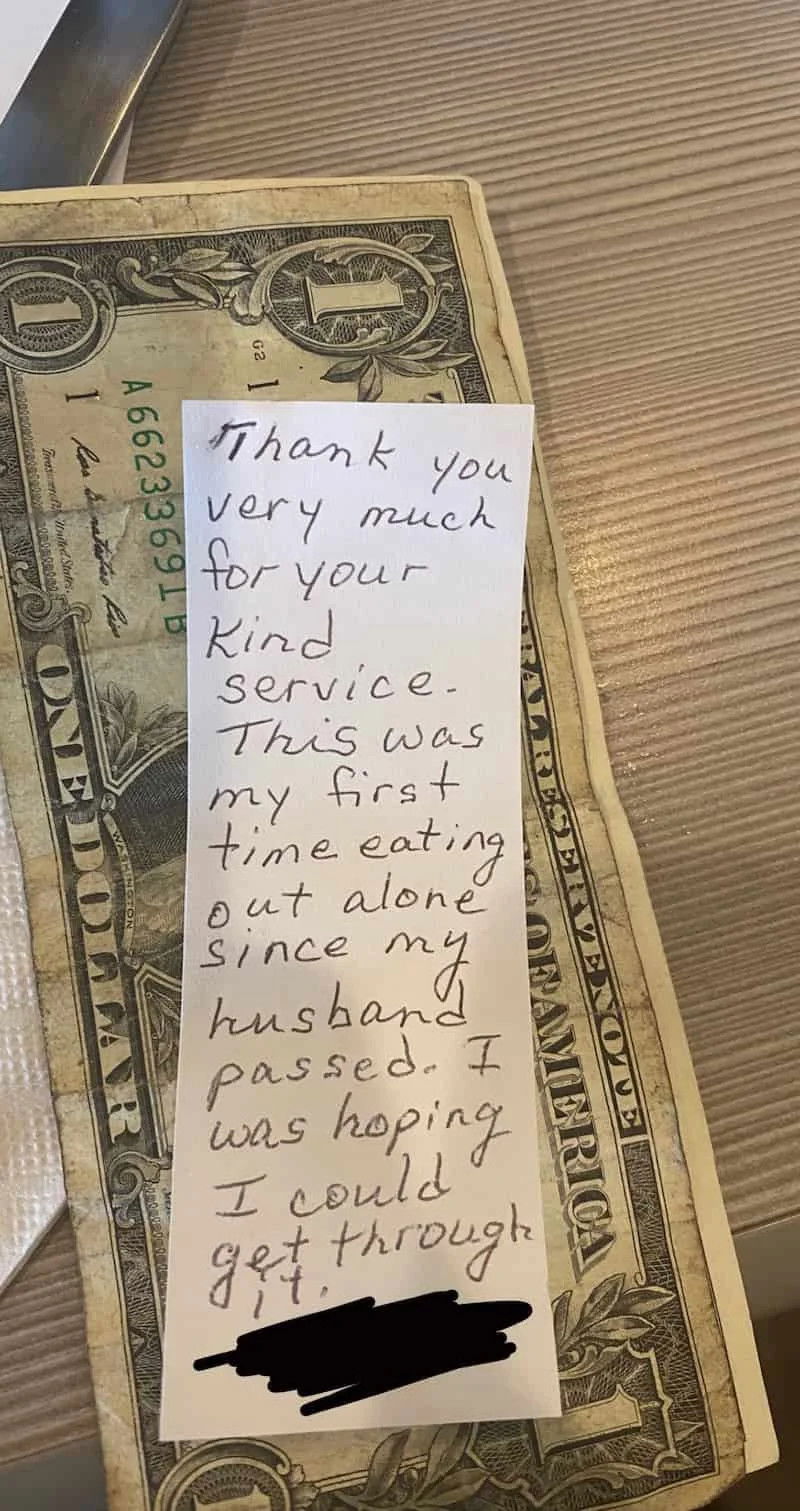 Thank you
very much
for your
kind
service.
This was
my first
time eating
out alone
since my
husband
passed. I
was hoping
I could
get through
it.
1
1
G2 1
A 66233691 B
1
ONE DOLLAR
WASHINGTON
OF AMERICA
1
1